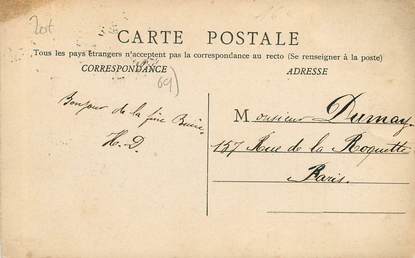 CARTE POSTALE
Tous les pays étrangers n'acceptent pas la correspondance au recto (Se renseigner à la poste)
CORRESPONDANCE
ADRESSE
69)
Bonjour de la
H.-D.
Monsieur Dumay
157 Rue de la Roquette
Paris.